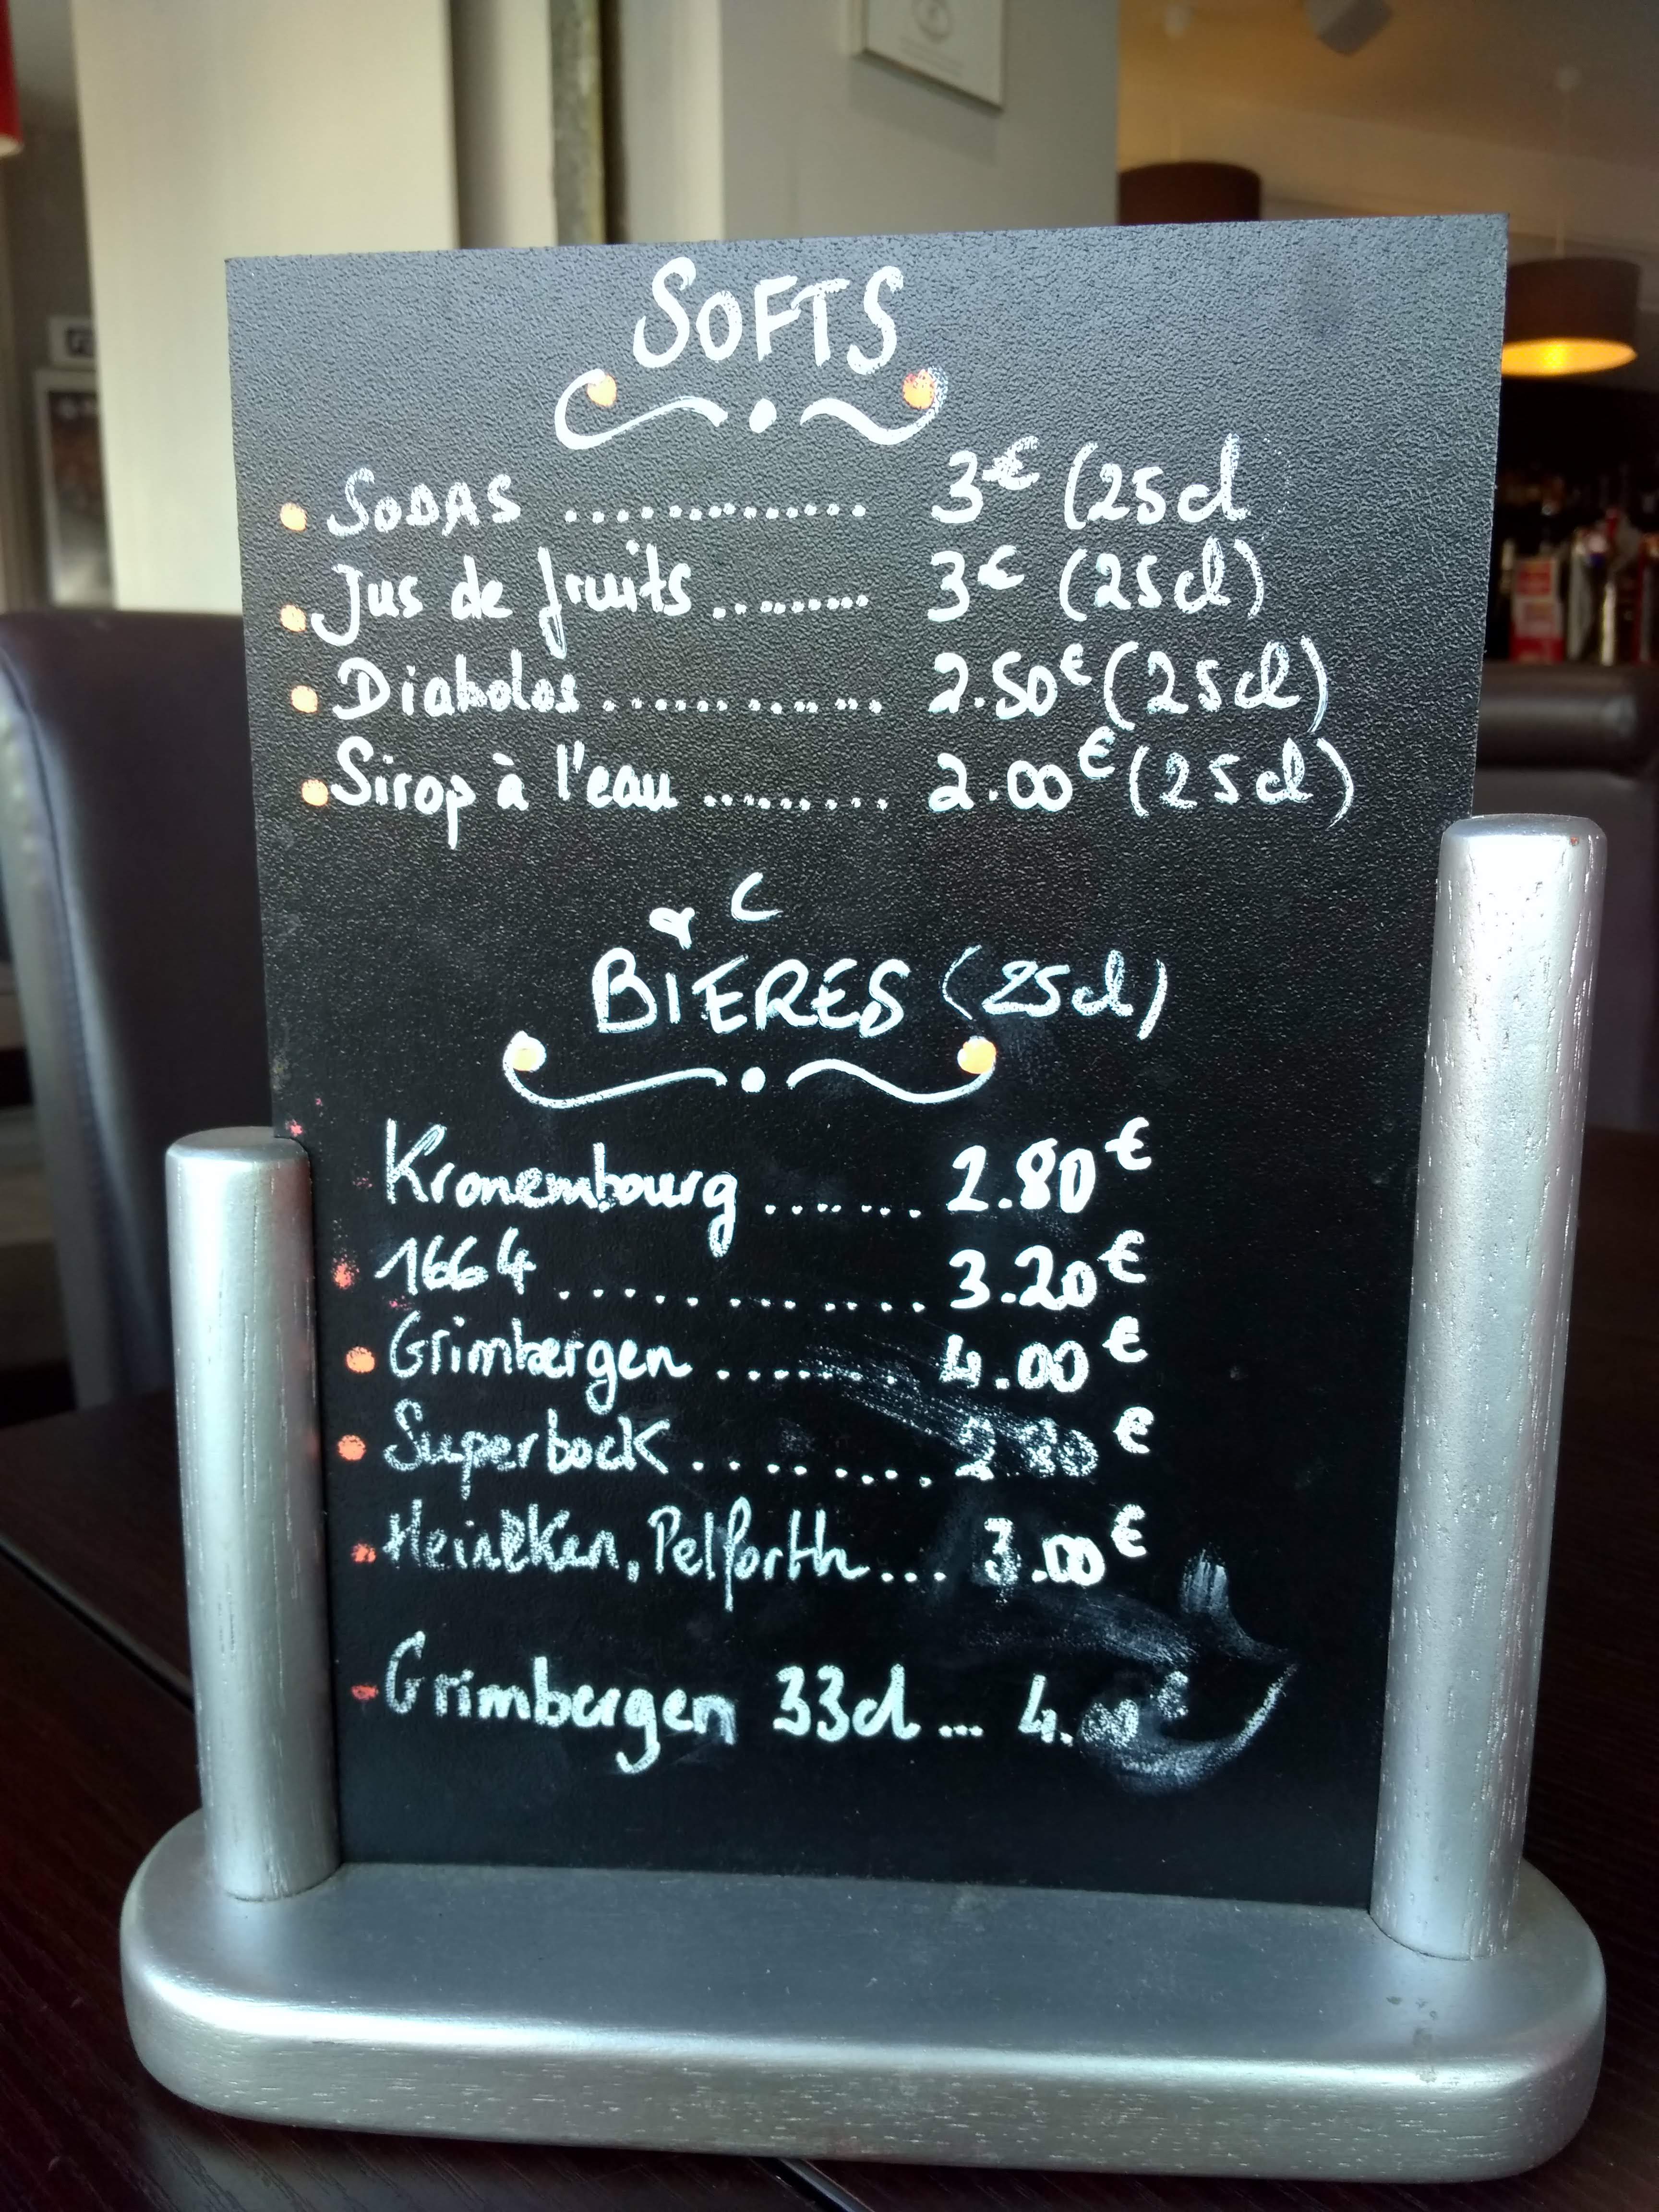 SOFTS
SODAS .............. 3€ (25cl
Jus de fruits ......... 3€ (25cl)
Diabolos .............. 2.50€ (25cl)
Sirop à l'eau ......... 2.00€ (25cl)
BIERES (25cl)
Kronembourg ....... 2.80€
1664 ............. 3.20€
Grimbergen ........ 4.00€
Superbock ......... €
Heineken, Pelforth ... 3.00€
Grimbergen 33cl ... 4.00€